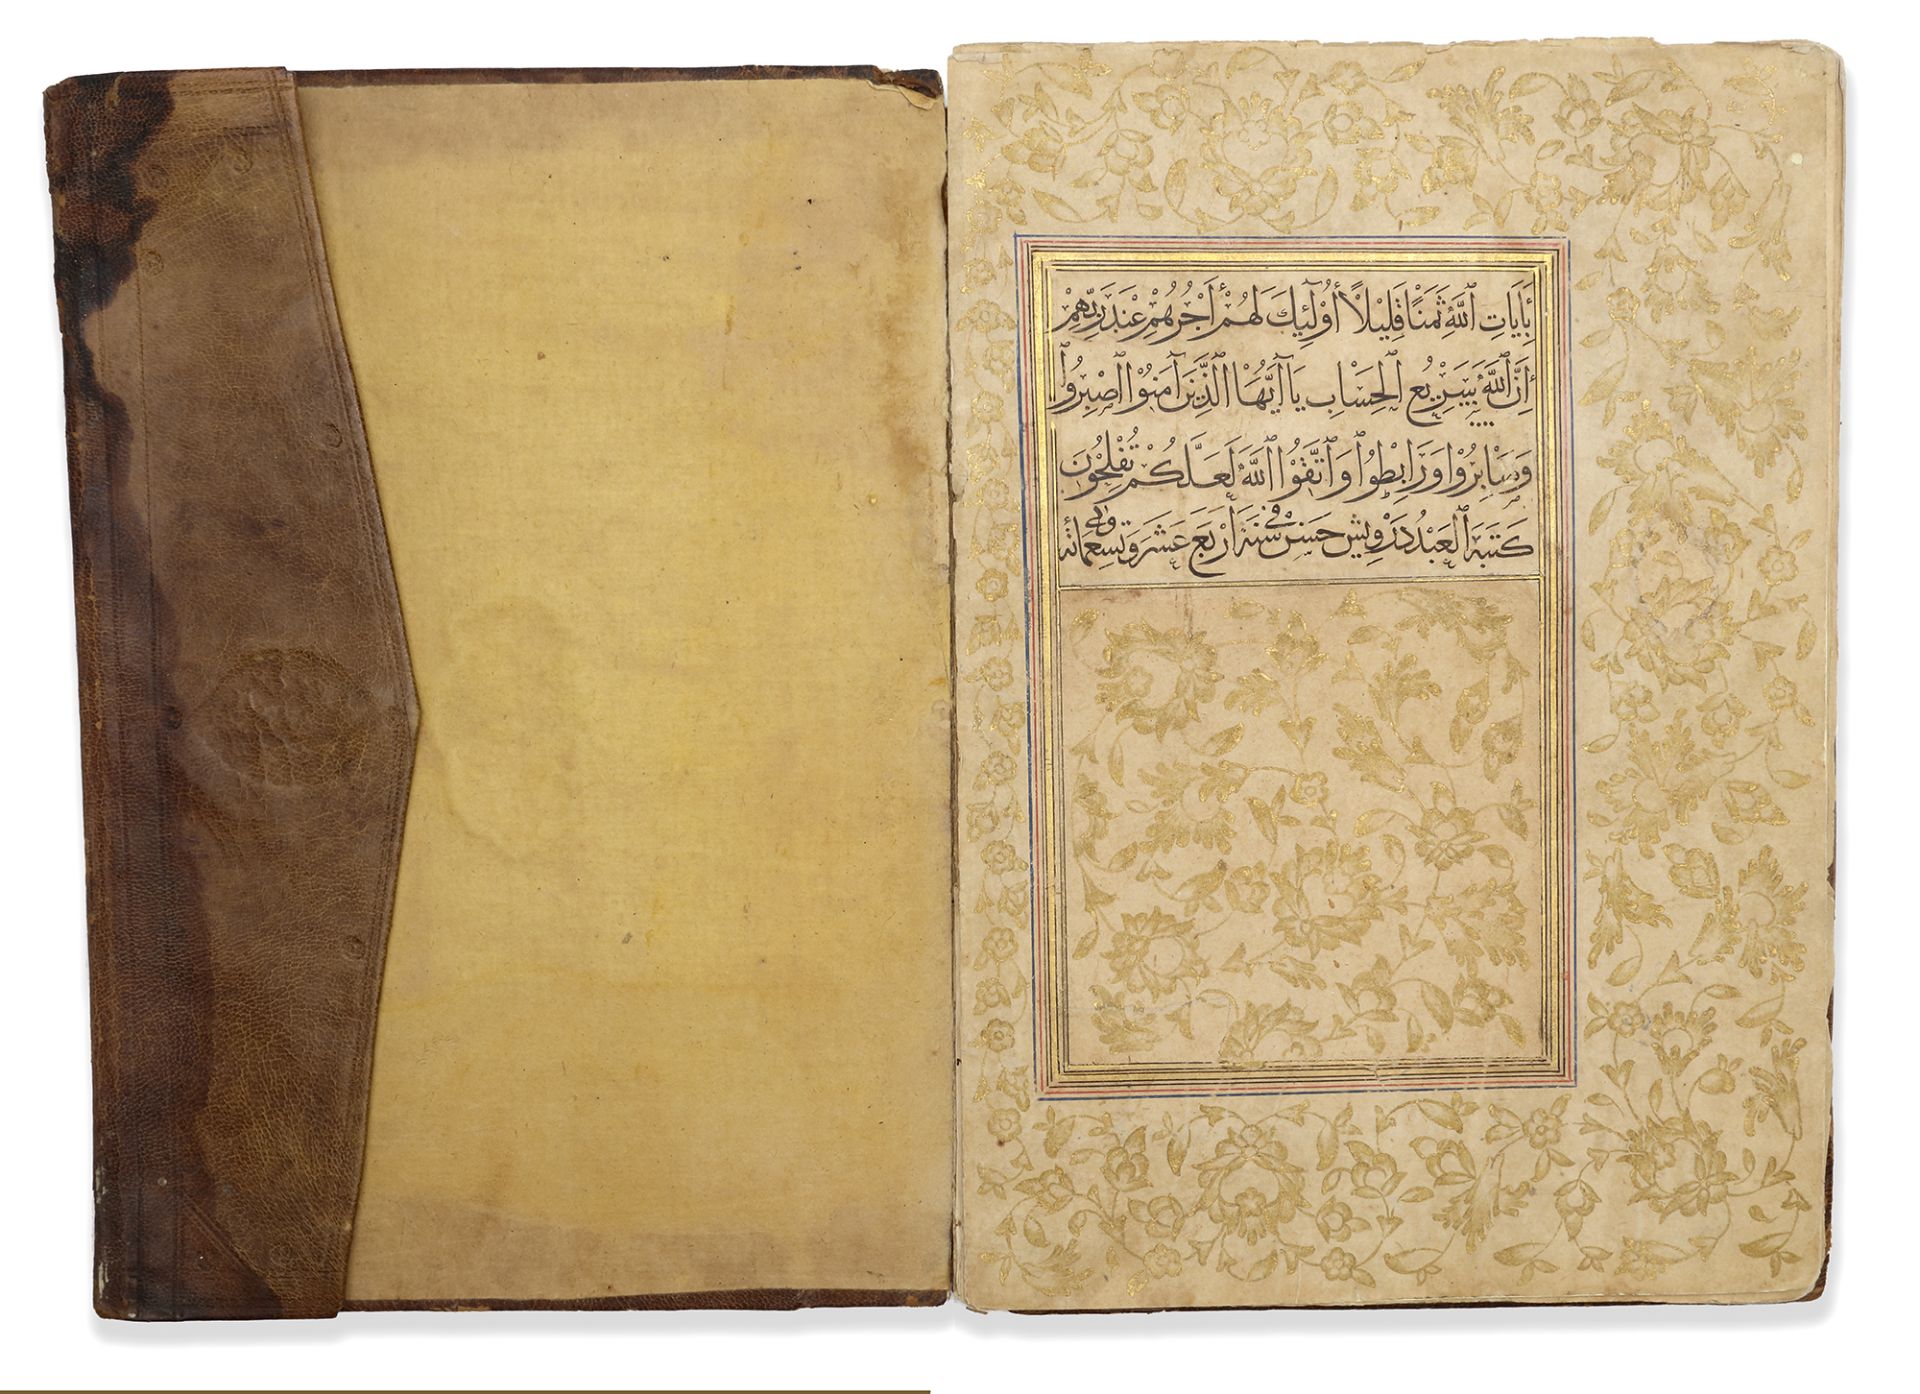 بِأَيَاتِ اللَّهِ ثَمَنًا قَلِيلًا أُوْلَٰئِكَ لَهُمْ أَجْرُهُمْ عِنْدَ رَبِّهِمْ
إِنَّ اللَّهَ سَرِيعُ الْحِسَابِ يَا أَيُّهَا الَّذِينَ آمَنُوْا اصْبِرُوْا
وَصَابِرُوْا وَرَابِطُوْا وَاتَّقُوْا اللَّهَ لَعَلَّكُمْ تُفْلِحُوْنَ
كَتَبَهُ الْعَبْدُ دَرْوِيش حَسَن فِي سَنَة أَرْبَع عَشَر وَتِسْعمَائه